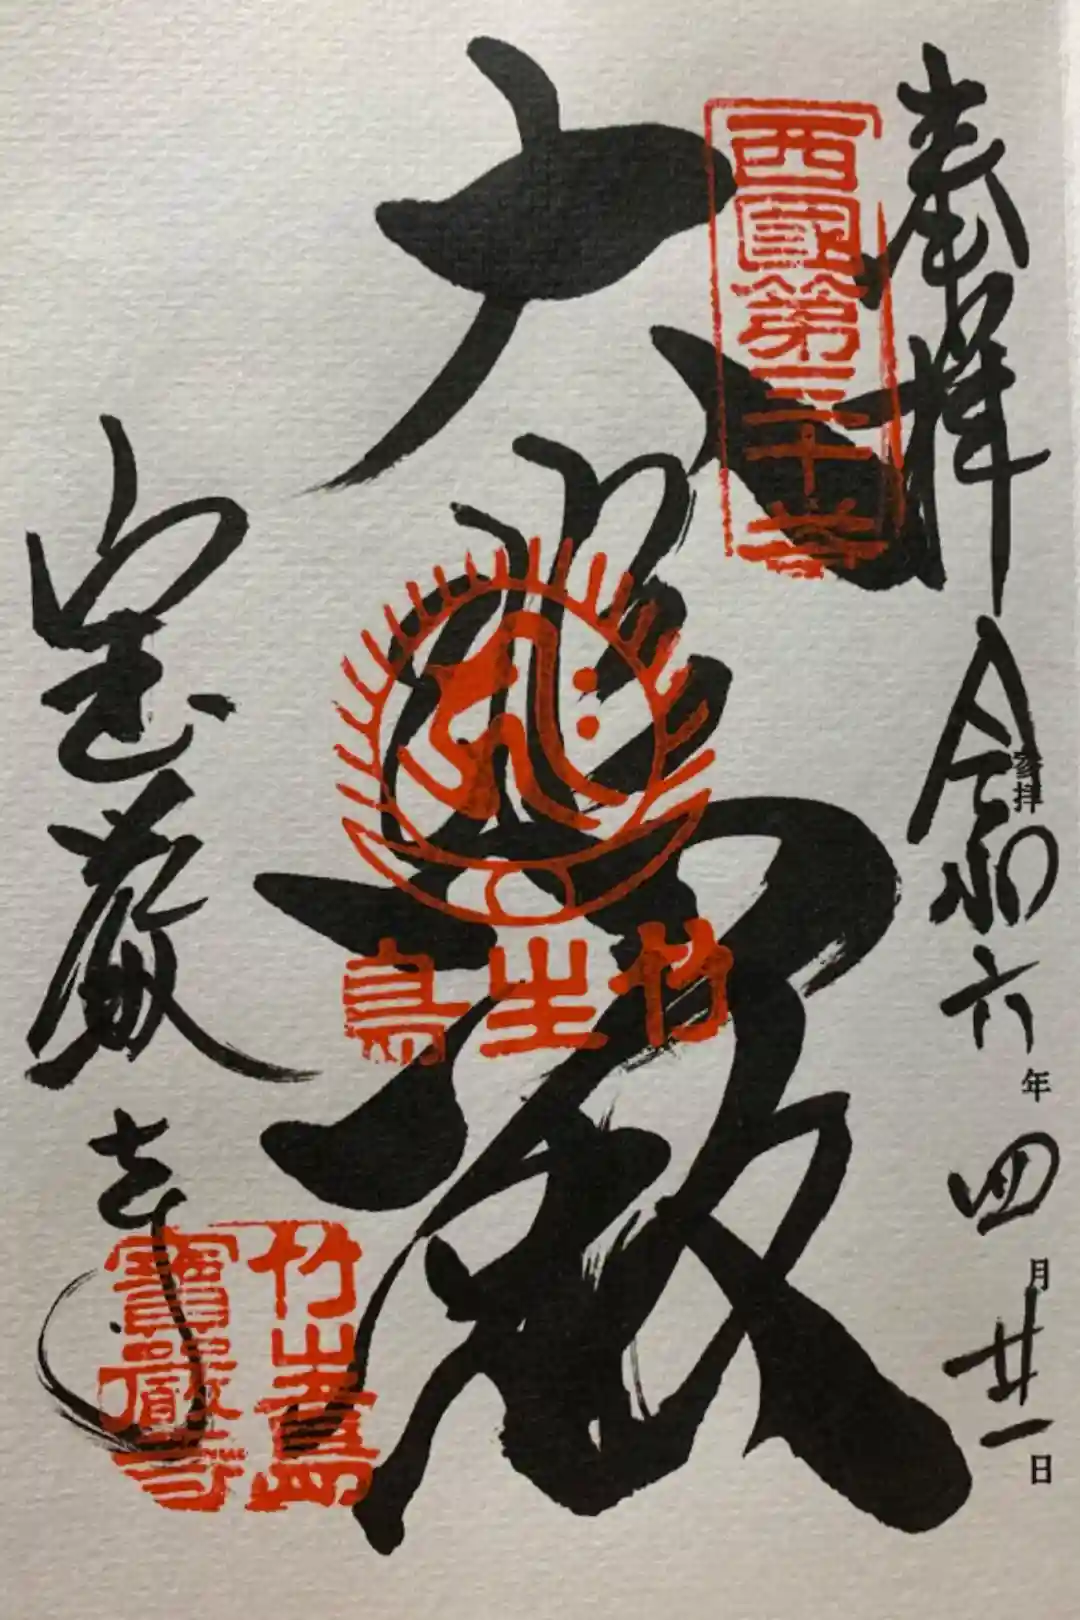 奉拝
令和六年四月廿一日
参拝
西國第三十番
大悲殿
竹生島
宝厳寺
竹生島
寶嚴寺